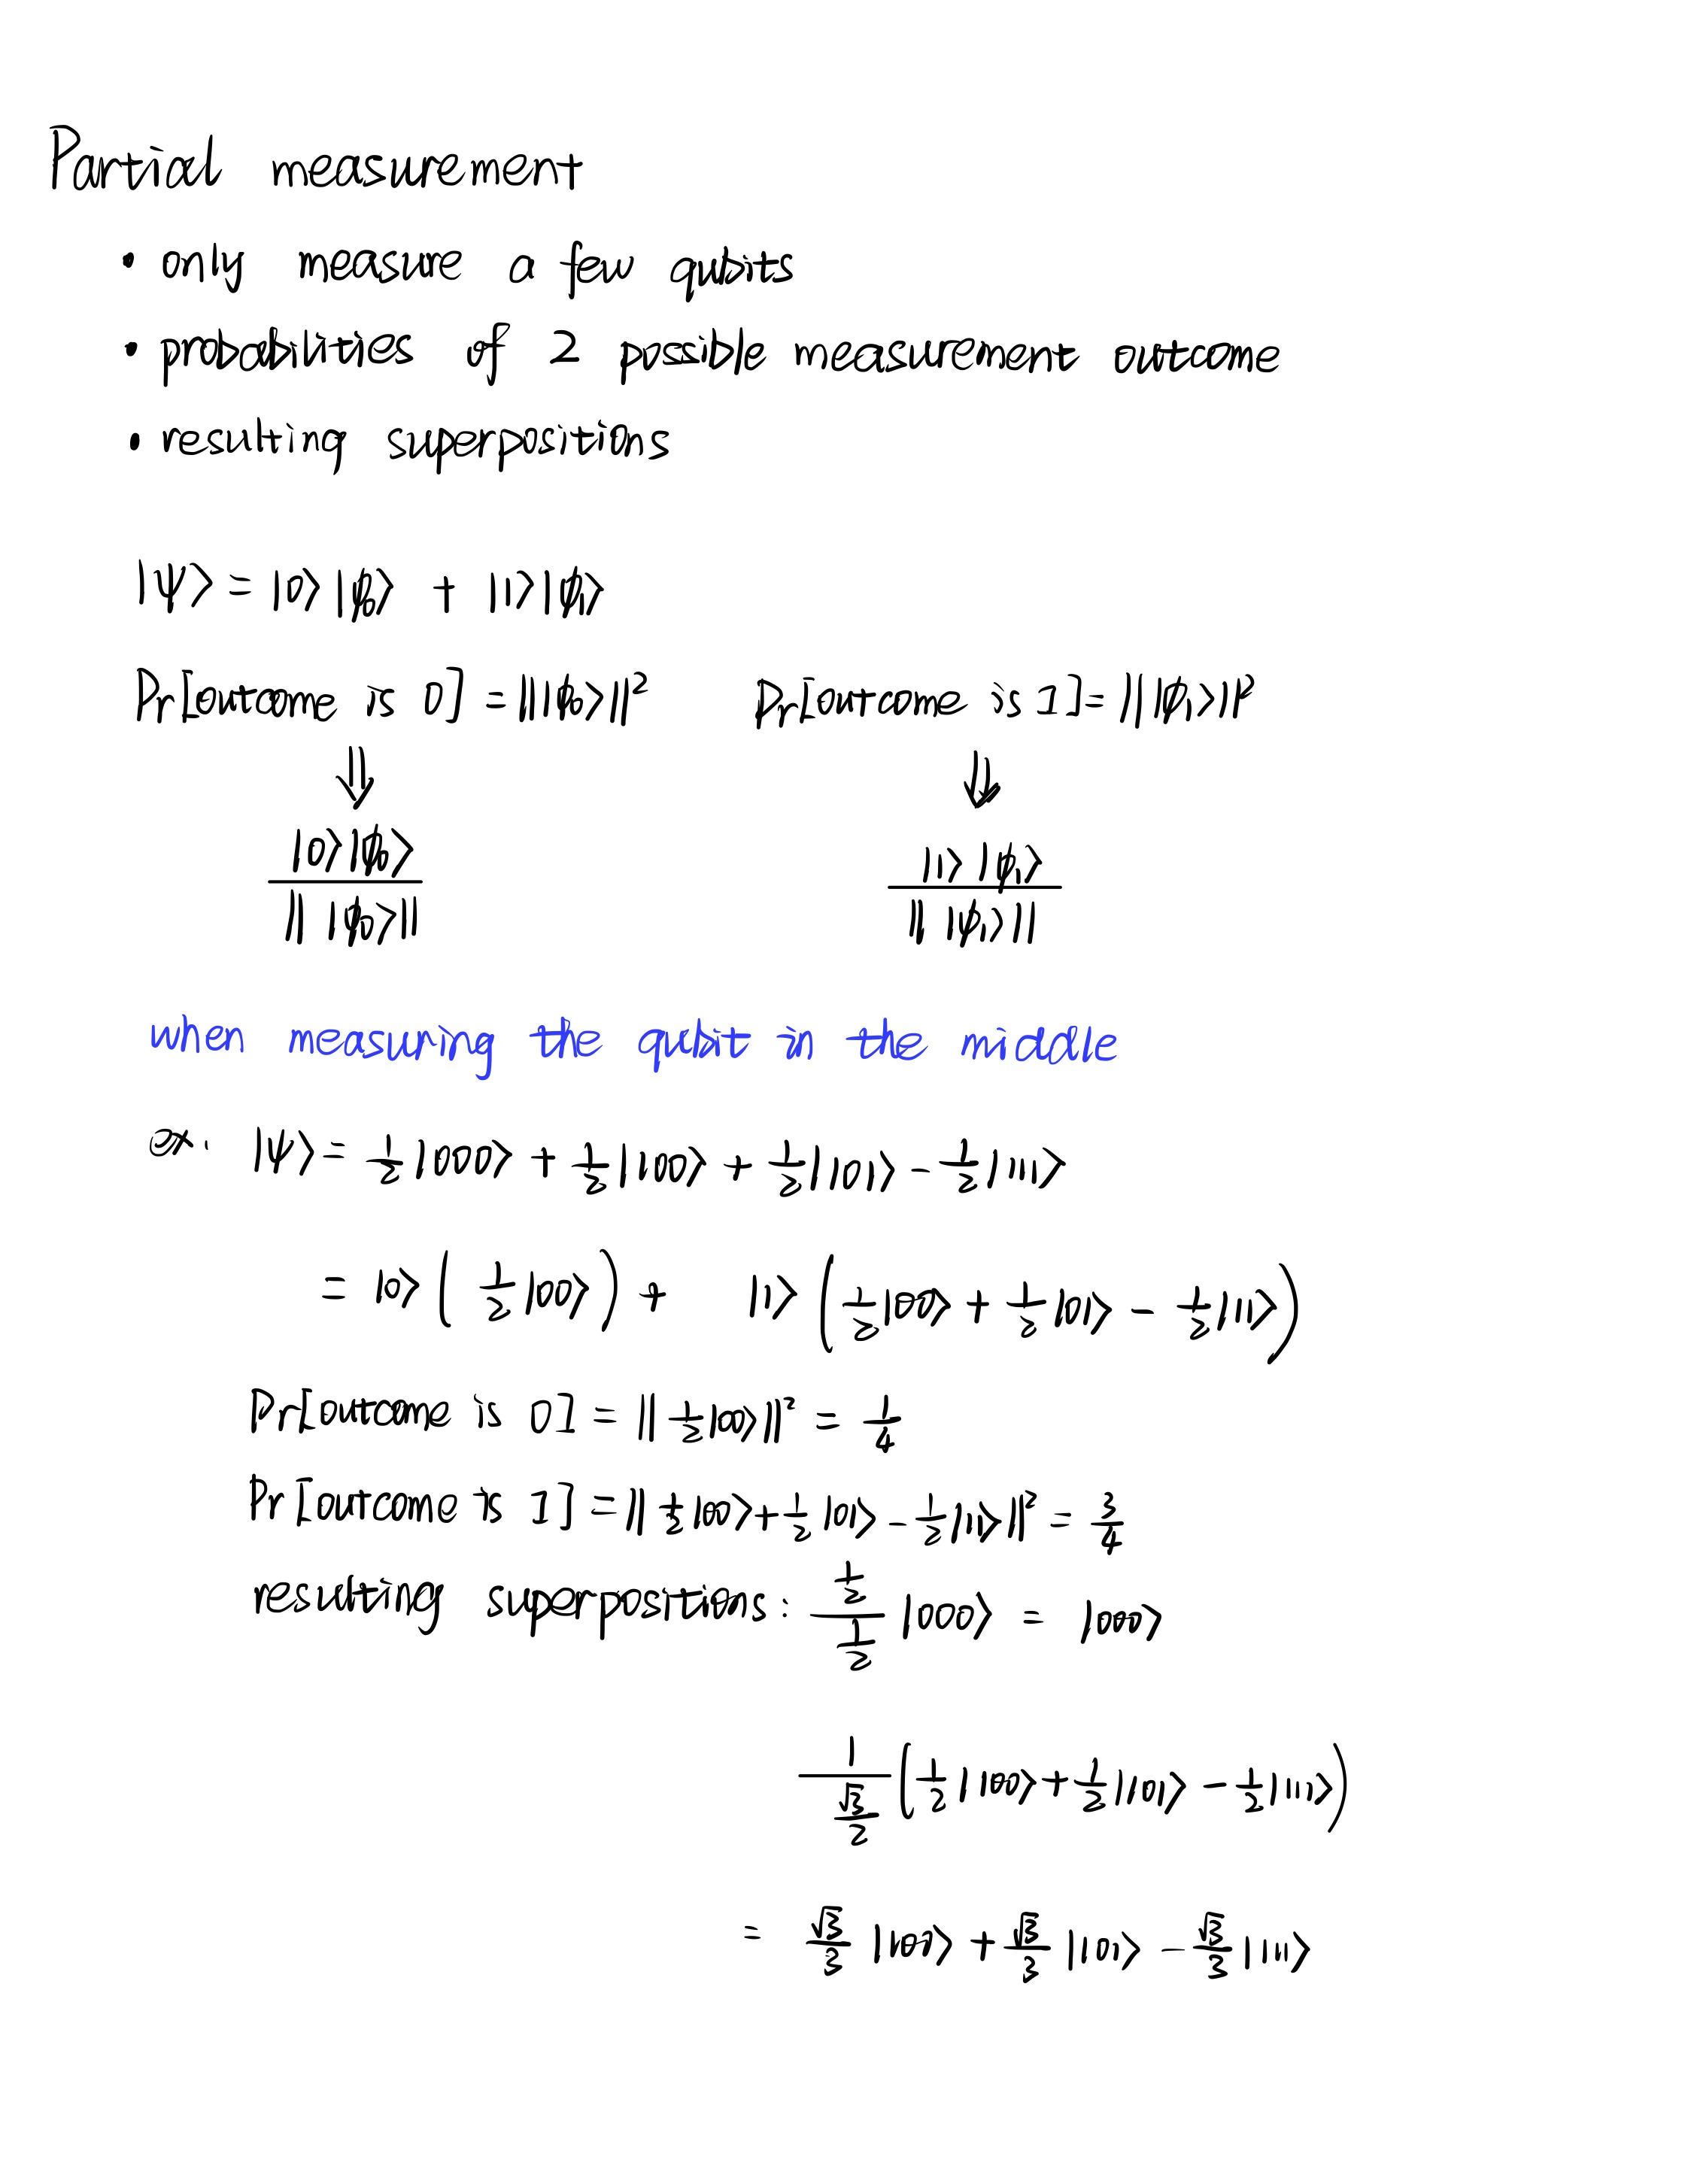 Partial measurement
• only measure a few qubits
• probabilities of 2 possible measurement outcome
• resulting superpositions
|ψ⟩ = |0⟩|ϕ₀⟩ + |1⟩|ϕ₁⟩
Pr[outcome is 0] = || |ϕ₀⟩ ||² Pr[outcome is 1] = || |ϕ₁⟩ ||²
⇓ ⇓
|0⟩|ϕ₀⟩ / || |ϕ₀⟩ || |1⟩|ϕ₁⟩ / || |ϕ₁⟩ ||
when measuring the qubit in the middle
ex. |ψ⟩ = 1/2 |000⟩ + 1/2 |100⟩ + 1/2 |101⟩ - 1/2 |111⟩
= |0⟩ ( 1/2 |00⟩ ) + |1⟩ ( 1/2 |00⟩ + 1/2 |01⟩ - 1/2 |11⟩ )
Pr[outcome is 0] = || 1/2 |00⟩ ||² = 1/4
Pr[outcome is 1] = || 1/2 |00⟩ + 1/2 |01⟩ - 1/2 |11⟩ ||² = 3/4
resulting superpositions: (1/2)/(1/2) |000⟩ = |000⟩
1/(√3/2) ( 1/2 |100⟩ + 1/2 |101⟩ - 1/2 |111⟩ )
= √3/3 |100⟩ + √3/3 |101⟩ - √3/3 |111⟩